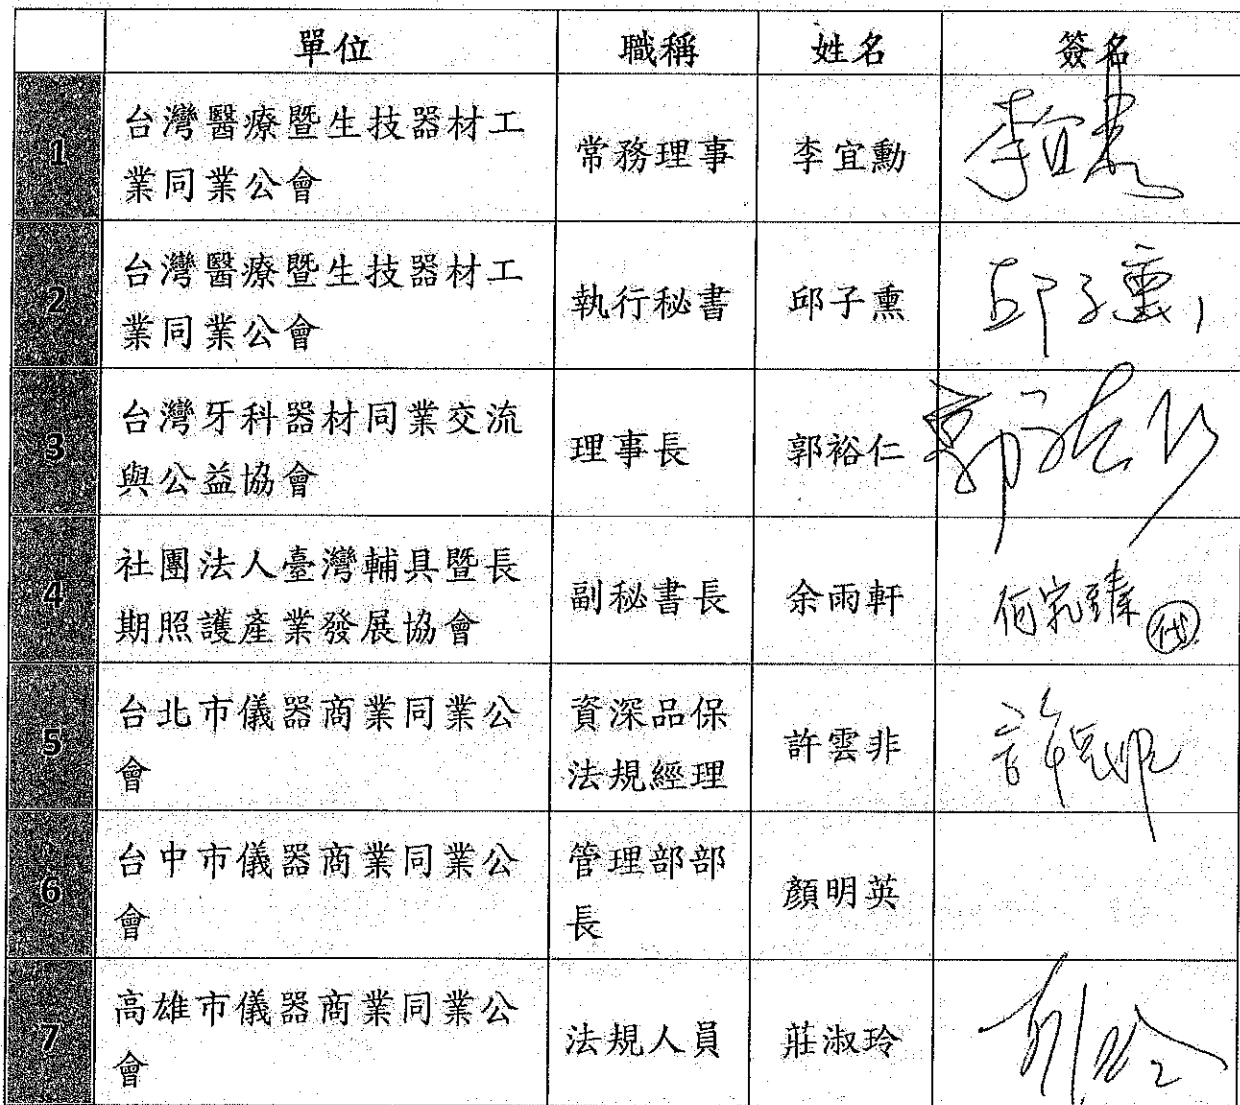 單位 職稱 姓名 簽名
1 台灣醫療暨生技器材工
業同業公會 常務理事 李宜勳 李宜
2 台灣醫療暨生技器材工
業同業公會 執行秘書 邱子熏 邱子
3 台灣牙科器材同業交流
與公益協會 理事長 郭裕仁 郭裕仁
4 社團法人臺灣輔具暨長
期照護產業發展協會 副秘書長 余雨軒 何宛臻 代
5 台北市儀器商業同業公
會 資深品保
法規經理 許雲非 許雲非
6 台中市儀器商業同業公
會 管理部部
長 顏明英
7 高雄市儀器商業同業公
會 法規人員 莊淑玲